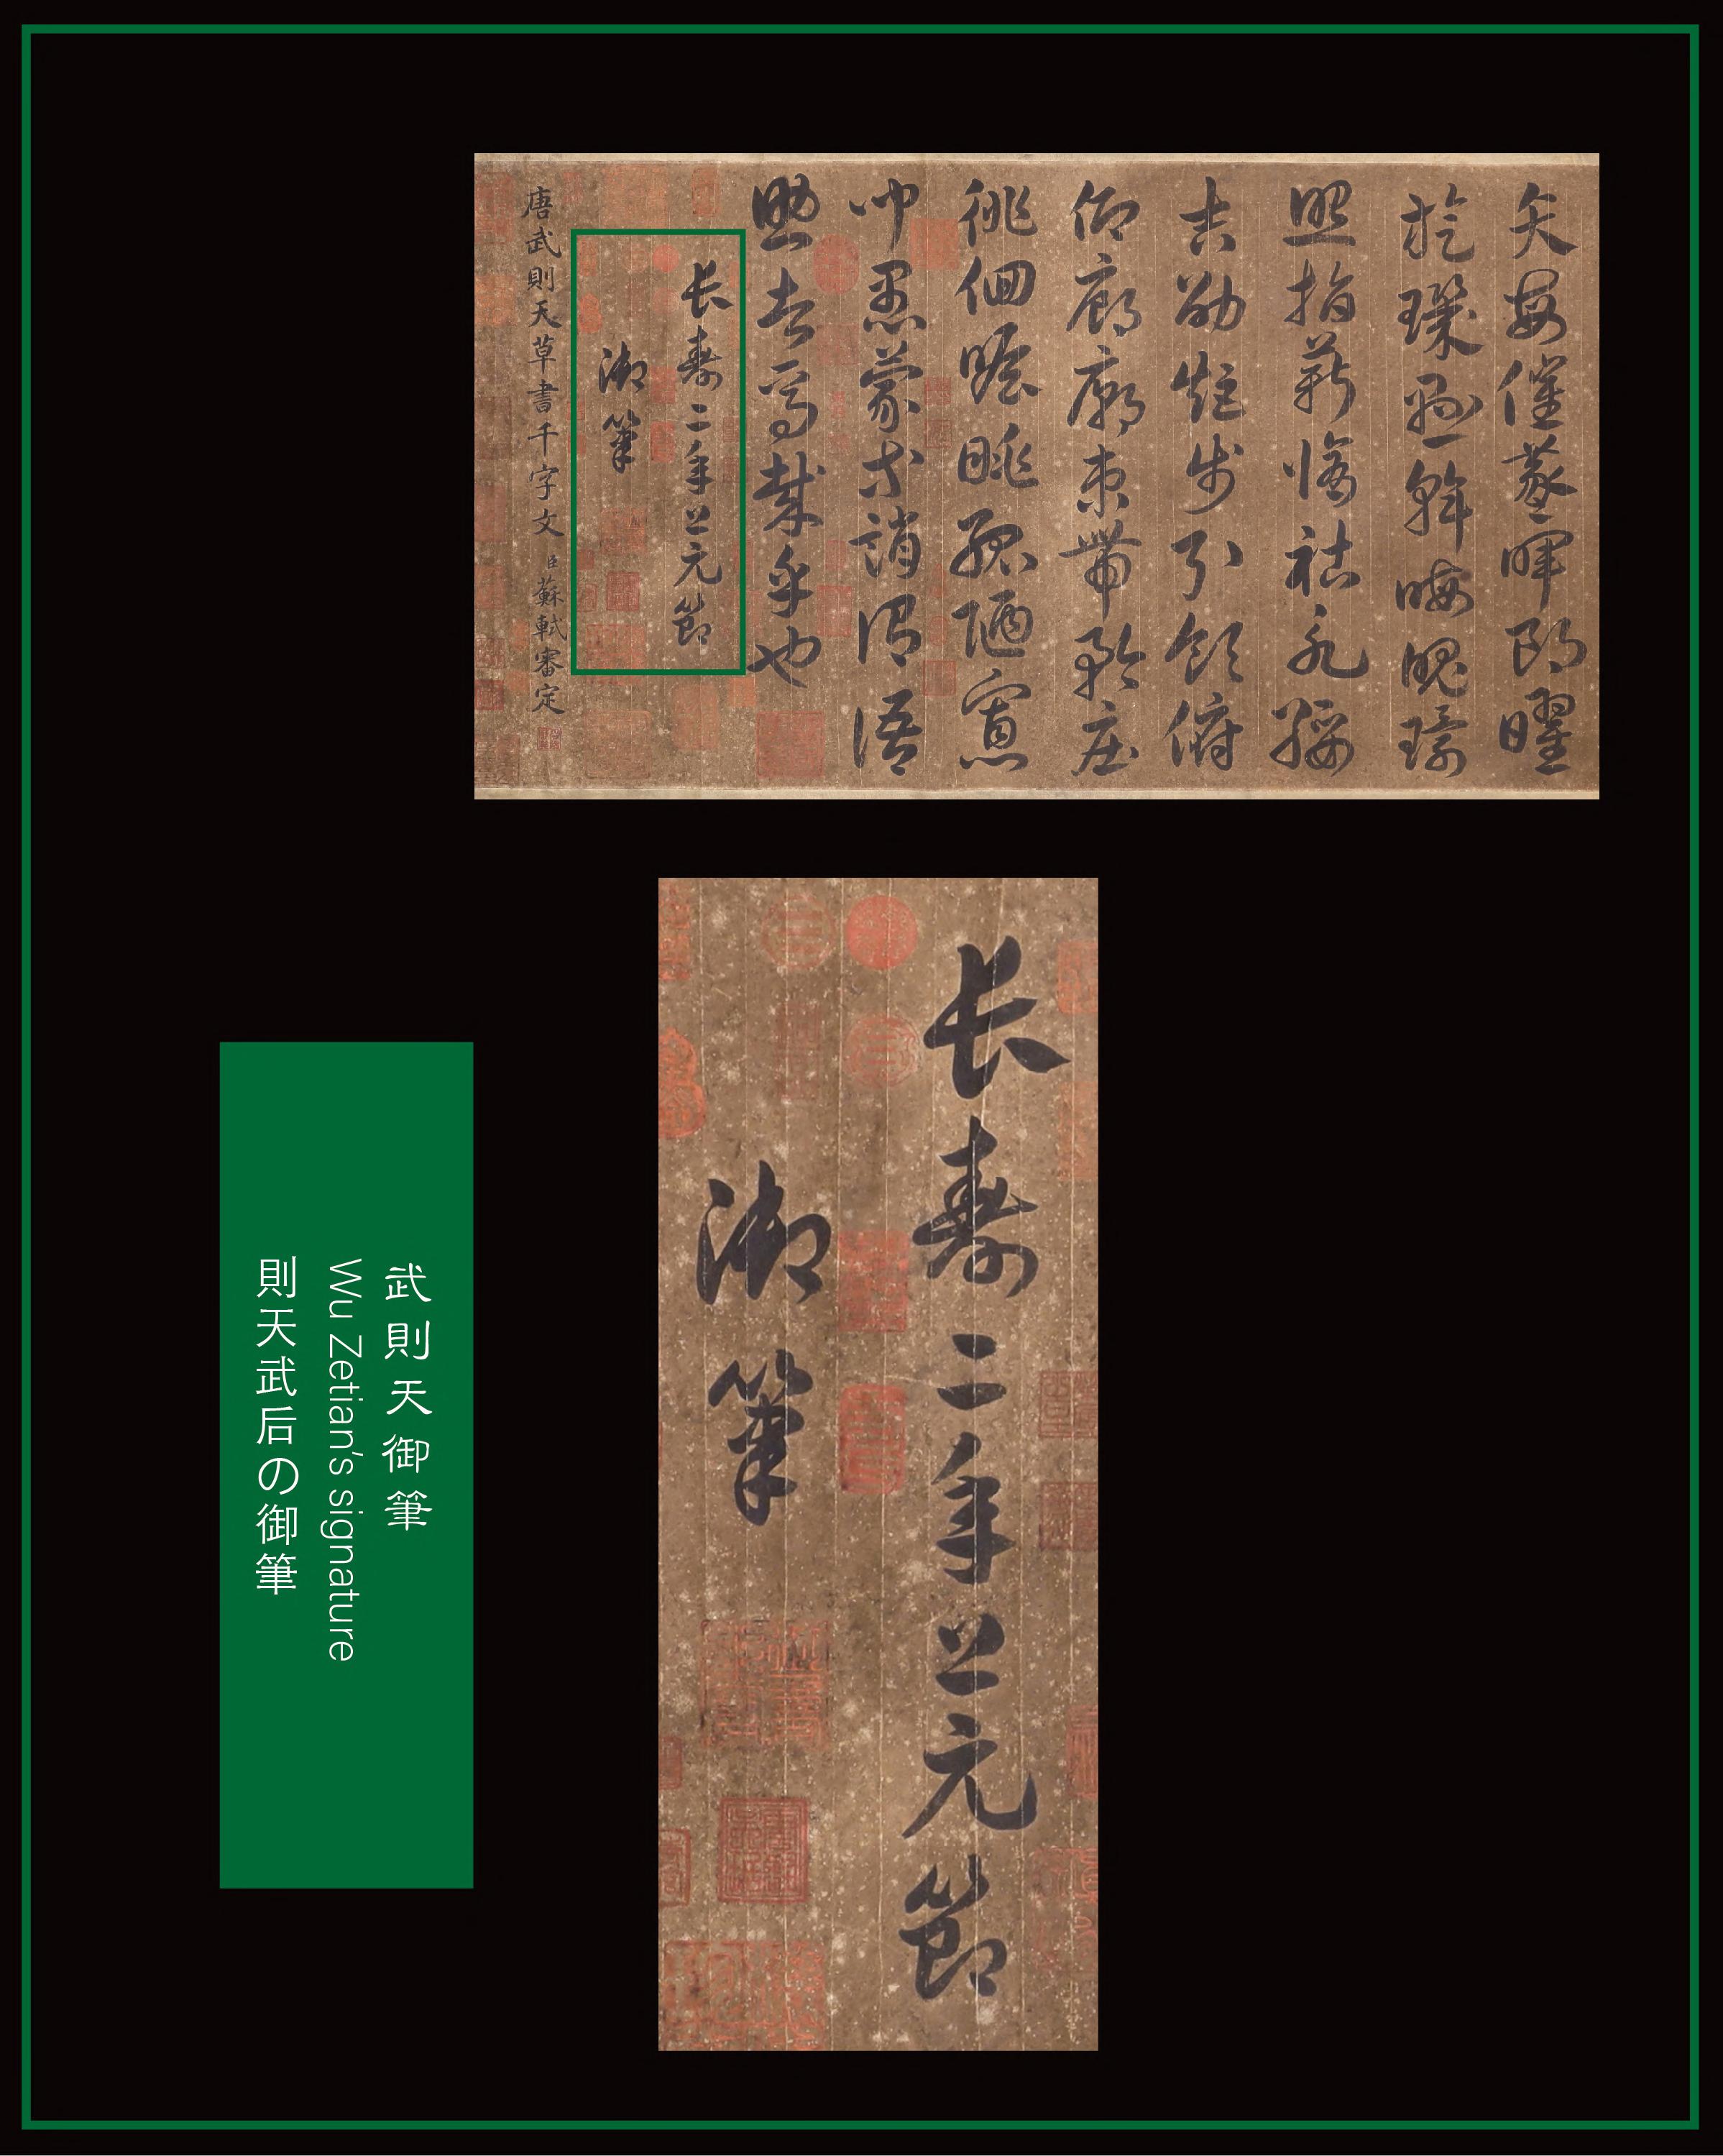 矢每催羲暉朗曜
旋璣懸斡晦魄環
照指薪修祜永綏
吉劭矩步引領俯
仰廊廟束帶矜莊
徘徊瞻眺孤陋寡
聞愚蒙等誚謂語
助者焉哉乎也
长壽二年上元節
御筆
唐武則天草書千字文 臣蘇軾審定
长壽二年上元節
御筆
武則天御筆
Wu Zetian's signature
則天武后の御筆